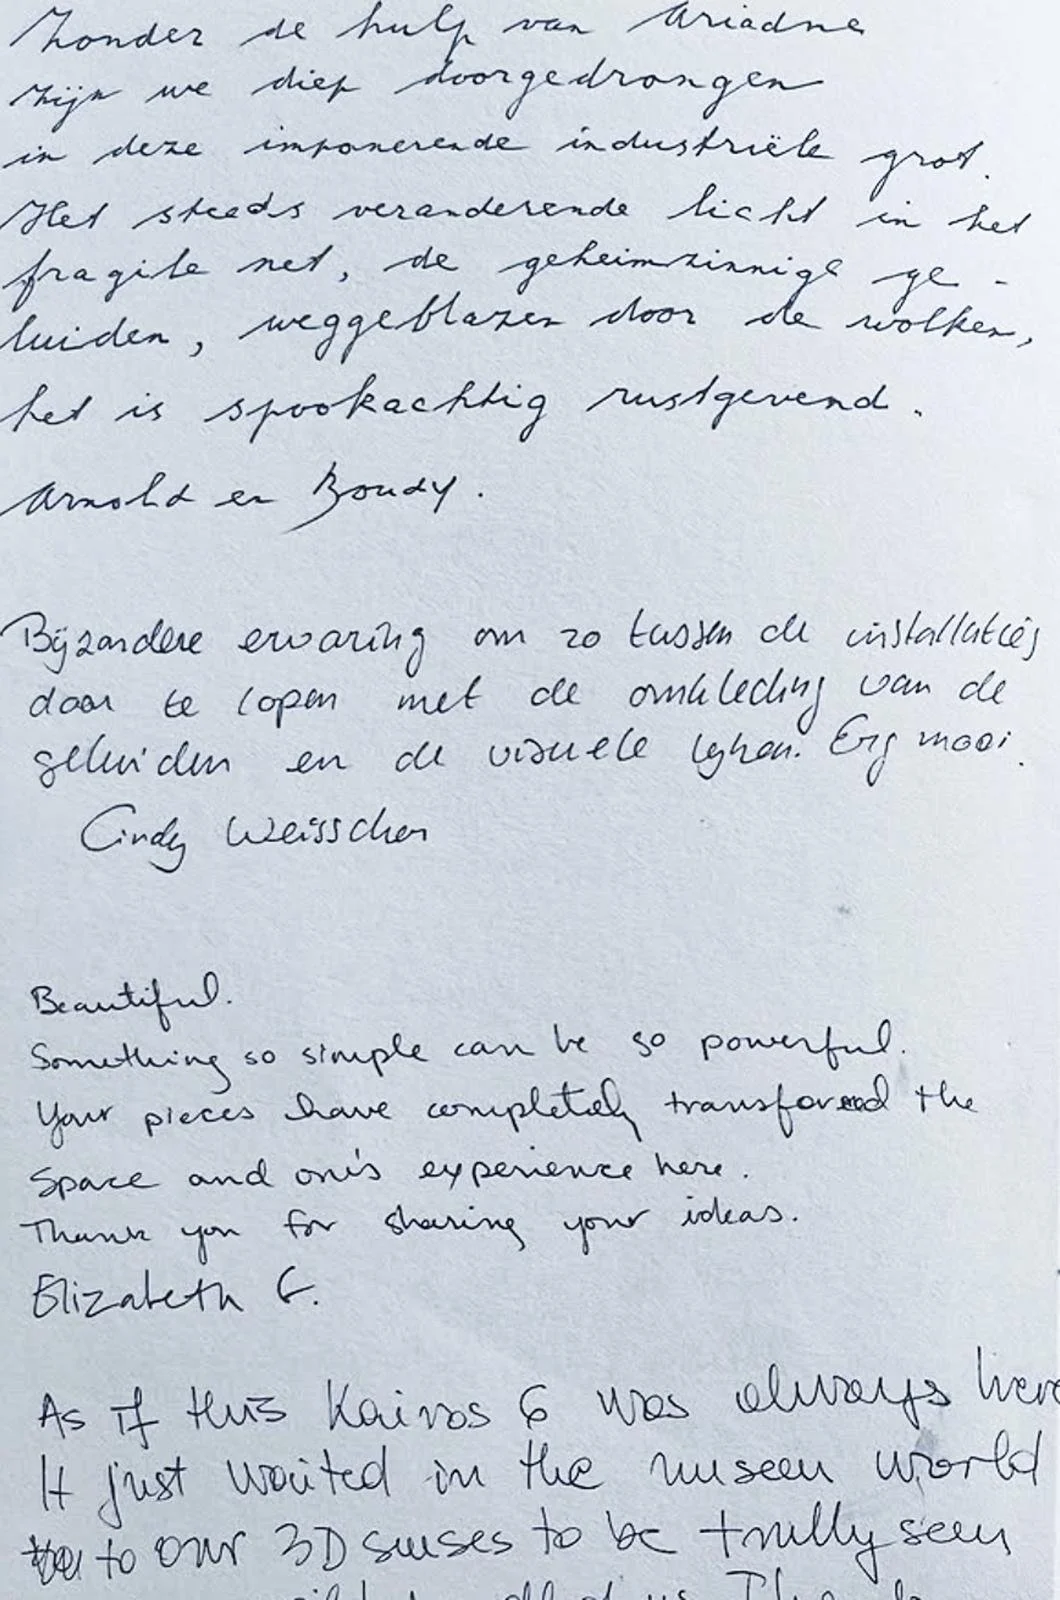 Zonder de hulp van Ariadne
zijn we diep doorgedrongen
in deze imponerende industriële grot.
Het steeds veranderende licht in het
fragile net, de geheimzinnige ge-
luiden, weggeblazen door de wolken,
het is spookachtig rustgevend.
Arnold en Boudy.
Bijzondere ervaring om zo tussen de installaties
door te lopen met de omkleding van de
geluiden en de visuele lijnen. Erg mooi.
Cindy Weisscher
Beautiful.
Something so simple can be so powerful.
Your pieces have completely transformed the
space and one's experience here.
Thank you for sharing your ideas.
Elizabeth G.
As if this Kairos 6 was always here
It just waited in the unseen world
to our 3D senses to be trully seen